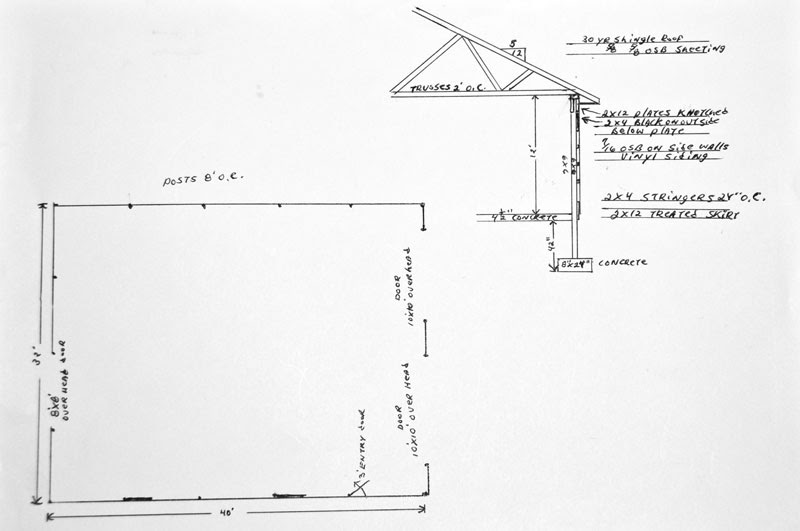 5
12
30 YR Shingle Roof
5/8 5/8 OSB SHEETING
TRUSSES 2' O.C.
2X12 PLATES KNOTCHED
2X4 BLACK ON OUTSIDE
Below PLATE
7/16 OSB ON Side WALLS
VINYL SIDING
12'
2X4 STRINGERS 24" O.C.
2X12 TREATED SKIRT
4 1/2" CONCRETE
42"
8"X24" CONCRETE
POSTS 8' O.C.
DOOR
10'X10' OVERHEAD
32'
8'X8'
OVERHEAD DOOR
DOOR
10'X10' OVER HEAD
3' ENTRY DOOR
40'